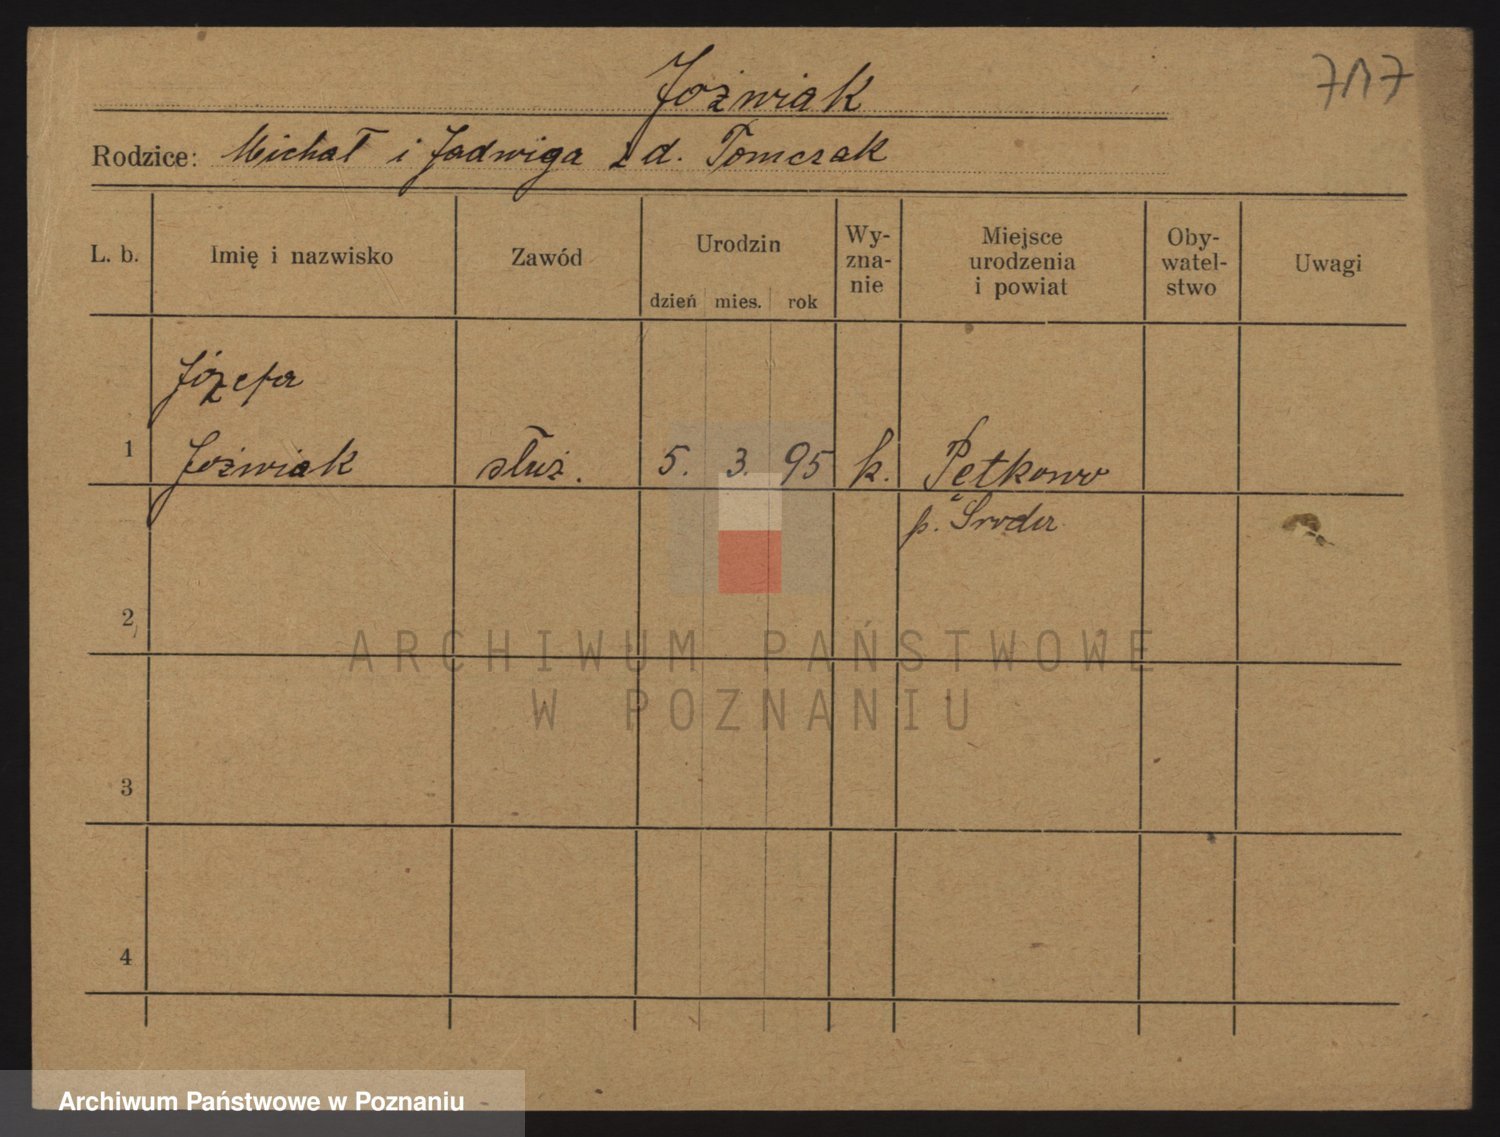 7117
Jóźwiak
Rodzice: Michał i Jadwiga z d. Tomczak
L. b. Imię i nazwisko Zawód Urodzin dzień mies. rok Wy-zna-nie Miejsce urodzenia i powiat Oby-watel-stwo Uwagi
Józefa
1 Jóźwiak służ. 5. 3. 95 k. Pętkowo
p. Środa
2
ARCHIWUM PAŃSTWOWE
W POZNANIU
3
4
Archiwum Państwowe w Poznaniu